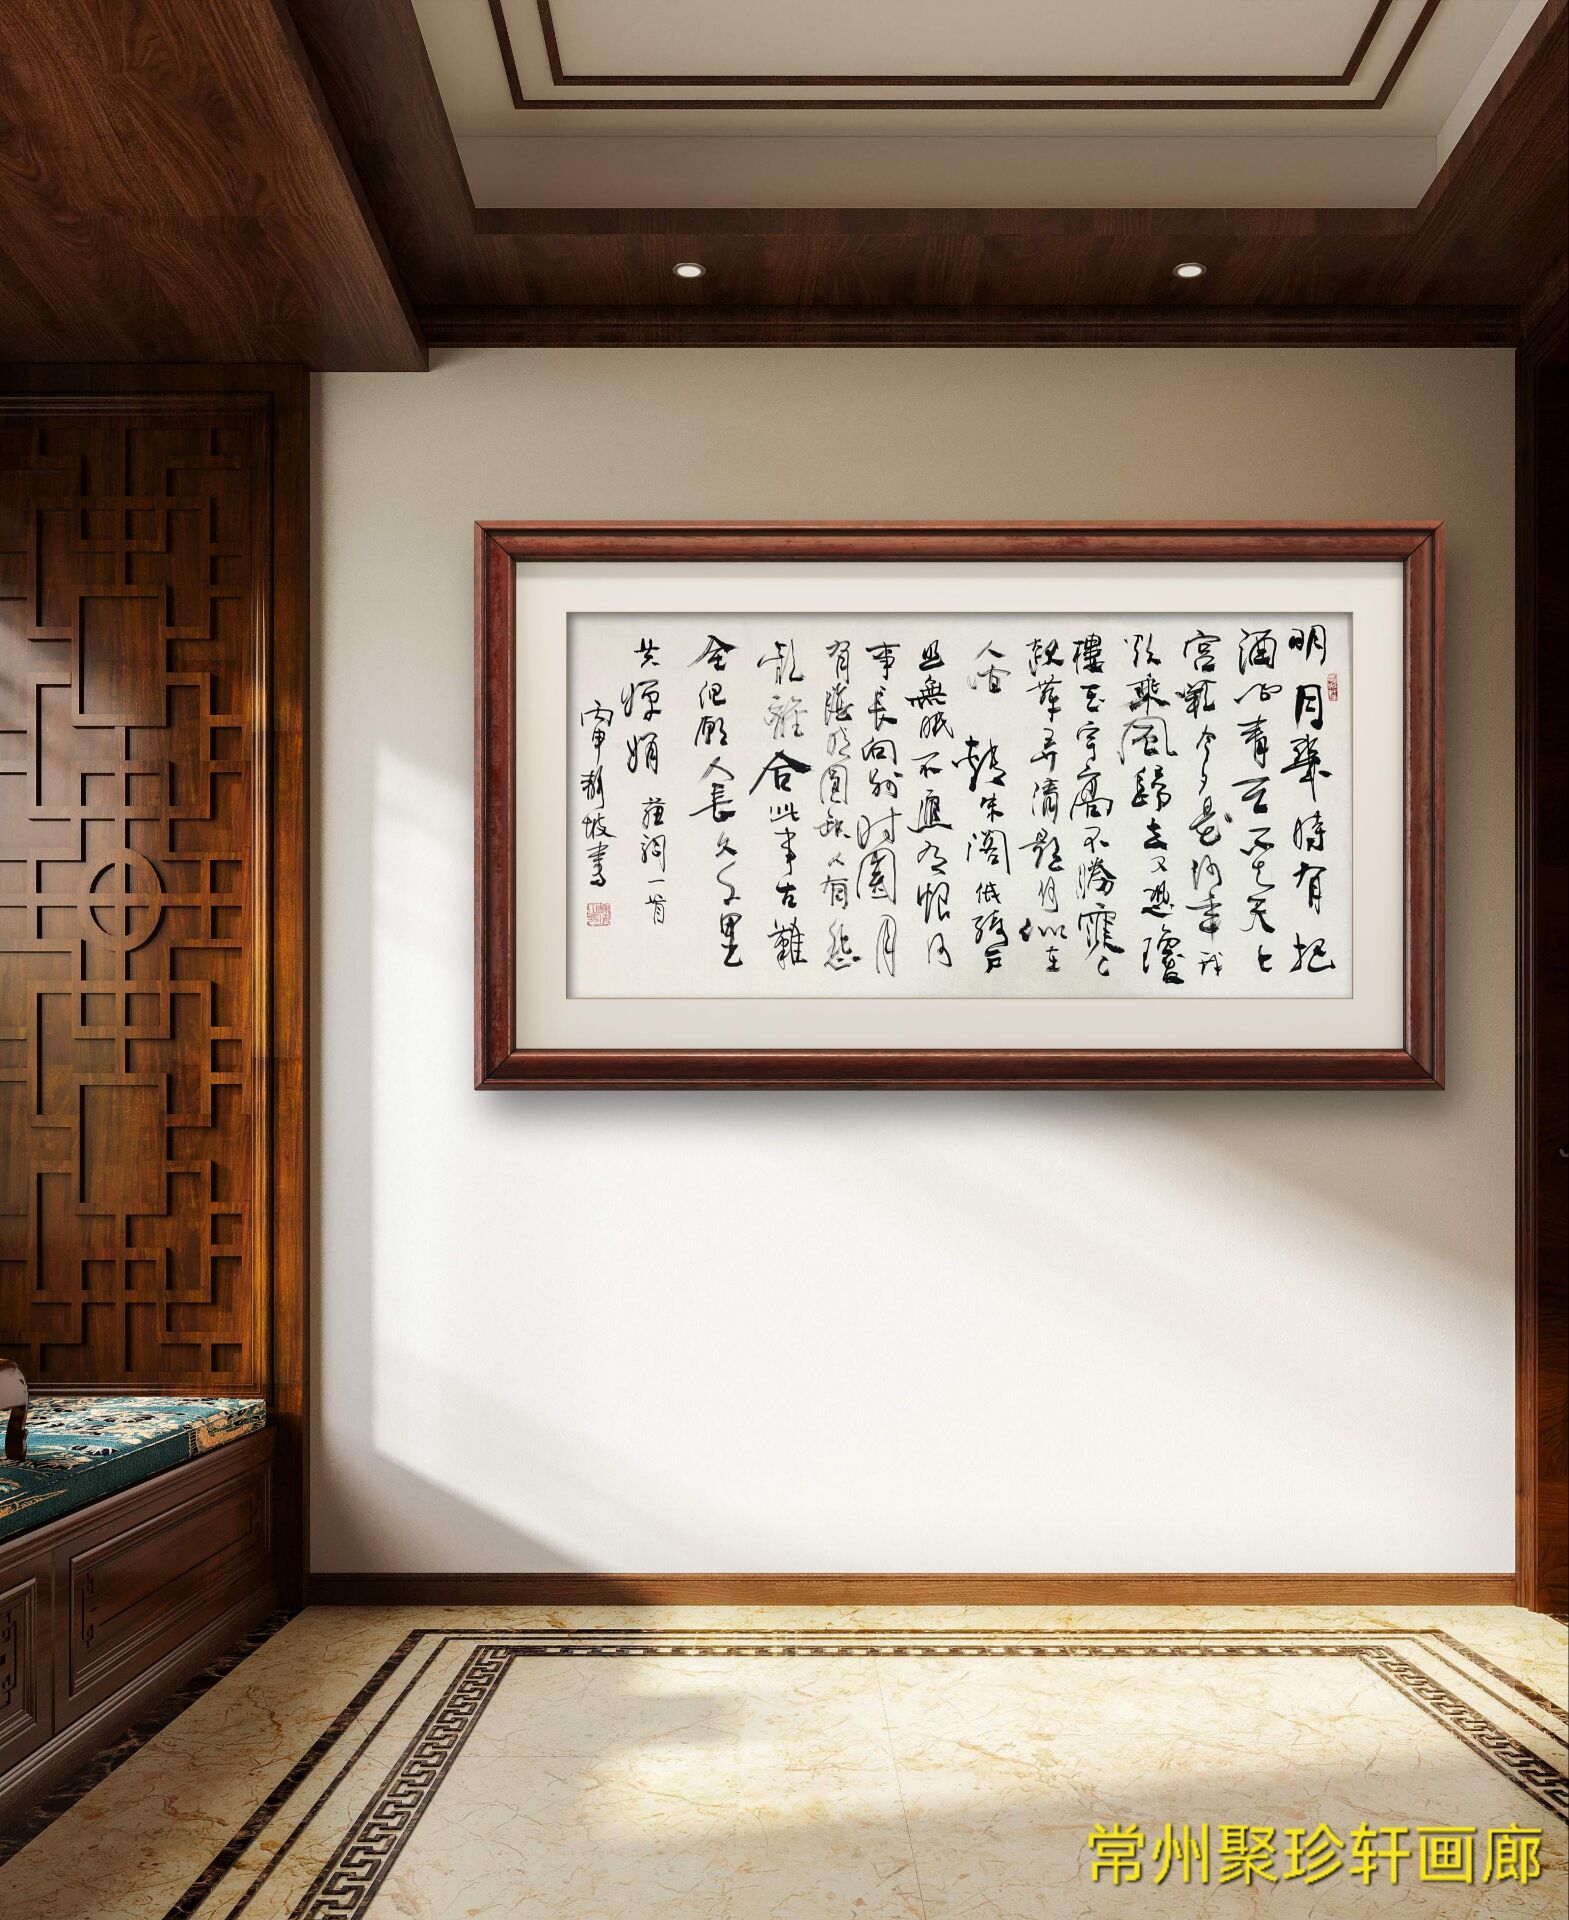 明月幾時有把
酒問青天不知天上
宮闕今夕是何年我
欲乘風歸去又恐瓊
樓玉宇高不勝寒起
舞弄清影何似在
人間轉朱閣低綺户
照無眠不應有恨何
事長向别时圓月
有陰晴圓缺人有悲
歡離合此事古難
全但願人長久千里
共嬋娟 蘇詞一首
丙申 坡書
常州聚珍轩画廊